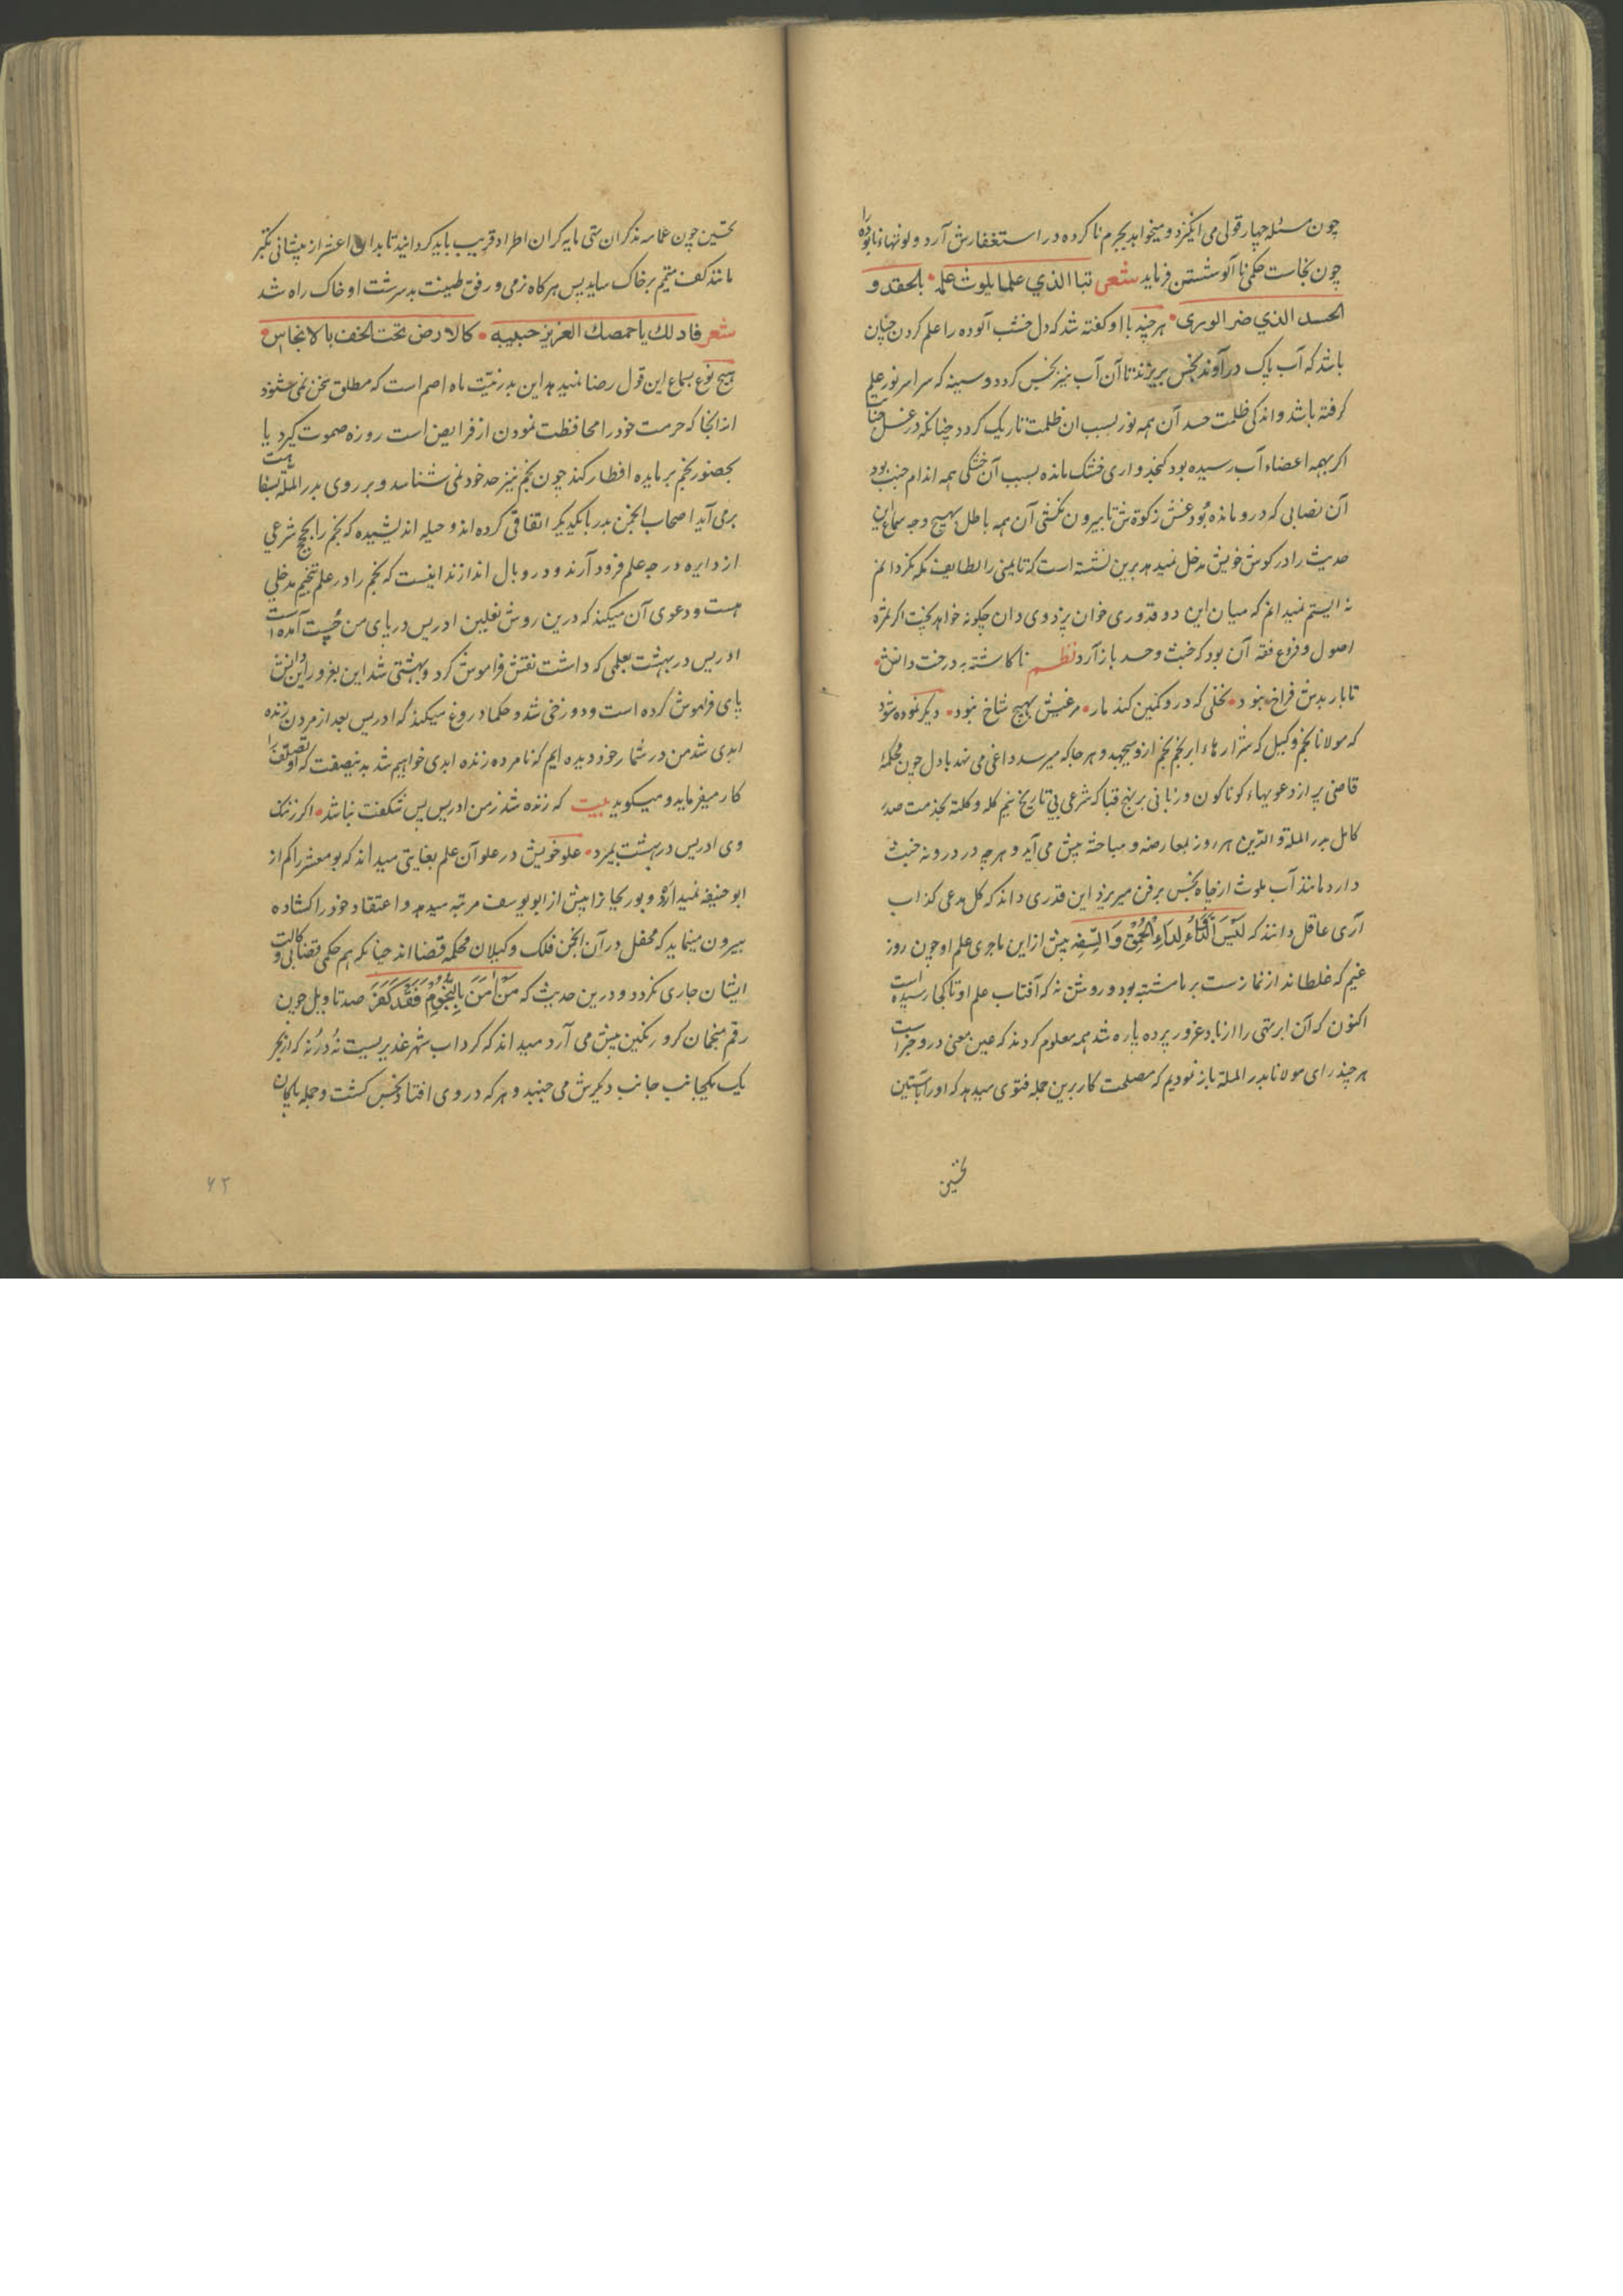 چون مسئله چهار قولی می انکیزد و میخواهد بجرم ناکرده در استغفارش آرد و لوثهاء نابوده را
چون نجاست حکمی نا آلوده شستن فرماید شعر تبا الذي علما یلوث علمه بالحقد و
الحسد الذي ضر الوری هر چند با او کفته شد که دل خبث آلوده را علم کردن چنان
باشد که آب پاک در آوند نجس بریزند تا آن آب نیز نجس کردد و سینه که سراسر نور علم
کرفته باشد و اندکی ظلمت حسد آن همه نور بسبب ان ظلمت تاریک کردد چنانکه در غسل جنابت
اکر بهمه اعضاء آب رسیده بود کنجد واری خشک مانده بسبب آن خشکی همه اندام جنب بود
آن نصابی که درو مانده بود غش زکوة ش تا بیرون نکشی آن همه باطل بهیچ وجه سماع این
حدیث را در کوش خویش مدخل نمیدهد برین نشسته است که تا یمنی را لطایف مکه نکردانم
نه ایستم نمیدانم که میان این دو قدوری خوان بزدوی دان چکونه خواهد بخت اکر ثمره
اصول و فروع فقه آن بود که خبث و حسد بار آرد نظم ناکاشته به درخت دانش
تا بار بدش فراخ نبود نخلی که درو کمین کند مار مرغیش بهیچ شاخ نبود دیکر نموده شود
که مولانا نجم وکیل که شرارهاء ابر نجم نجم ازو میجهد و هر جا که میرسد داغی می نهد با دل چون محکمهٔ
قاضی پر از دعویهاء کوناکون و زبانی بر نهج قباله شرعی بی تاریخ نیم کله و کلته بخدمت صدر
کامل بدر الملة و الدین هر روز بمعارضه و مباحثه پیش می آید و هر چه در درونه خبث
دارد مانند آب ملوث از چاه نجس بر فن میریزد این قدری داند که کل مدعی کذاب
آری عاقل دانند که لَیْسَ الدَّاءُ لدَاءِ الْحُمْقِ وَ السِّفهِ پیش ازین ماجری علم او چون روز
غیم که غلطاند از نماز ست بر ما مشتبه بود و روشن نه که آفتاب علم او تا کجا رسیده است
اکنون که آن ابر تهی را از باد غرور پرده پاره شد همه معلوم کردند که عین معنی در و جز است
هر چند رای مولانا بدر الملة باز نمودیم که مصلحت کار برین جمله فتوی میدهد که او را بآستین
نحستین
نحستین چون عمامه مذکران تهی مایه کران اطراد قریب باید کردانید تا بدان اعشر از پیشانی تکبر
مانند کف متیمم بر خاک ساید پس هرکاه نرمی و رفق طبیعت بد سرشت او خاک راه شد
شعر فادلك یا حمصك العزیز حبیبه کالارض تحت الخف بالانجاس
هیچ نوع بسماع این قول رضا نمیدهد این بدر نیّت ماه اصم است که مطلق سخن نمی شنود
از انجا که حرمت خود را محافظت نمودن از فرایض است روزه صموت کیرد یا
بحضور نجم بر مایده افطار کند چون نجم نیز حد خود نمی شناسد و بر روی بدر الملة بسفاهت
برمی آید اصحاب انجمن بدر بایکدیکر اتفاقی کرده اند و حیله اندیشیده که نجم را بحجج شرعی
از دایره درجه علم فرود آرند و در وبال اندازند اینست که نجم را در علم تنجیم مدخلی
هست و دعوی آن میکند که درین روش نعلین ادریس در پای من چُست آمده است
ادریس در بهشت بعلمی که داشت نقش فراموش کرد و بهشتی شد این بغرور دانش
پای فراموش کرده است و دوزخی شد و حکما دروغ میکند که ادریس بعد از مردن زنده
ابدی شد من در شمار خود دیده ایم که نامرده زنده ابدی خواهیم شد بدینصفت که او تصلف را
کار میفرماید و میکوید بیت که زنده شد زمن ادریس پس شکفت نباشد اکر زننک
وی ادریس در بهشت بمیرد علو خویش در علو آن علم بغایتی میداند که بومعشر را کم از
ابوحنیفه نمیدارد و بوریحانرا پیش از ابویوسف مرتبه میدهد و اعتقاد خود را کشاده
بیرون مینماید که محفل در آن انجمن فلک وکیلان محکمه قضا اند چنانکه هم حکمی قضا بی وکالت
ایشان جاری نکردد و درین حدیث که مَنْ اٰمَنَ بِالنُّجُومِ فَقَدْ کَفَرَ صد تاویل چون
رقم منجمان کرو رنکین پیش می آرد میداند که کرداب شهر غدیریست نه دُرنه که از بحر
یک یکجانب جانب دیکرش می جنبد و هر که در وی افتاد نجس کشت و جمله پاکان
۶۲